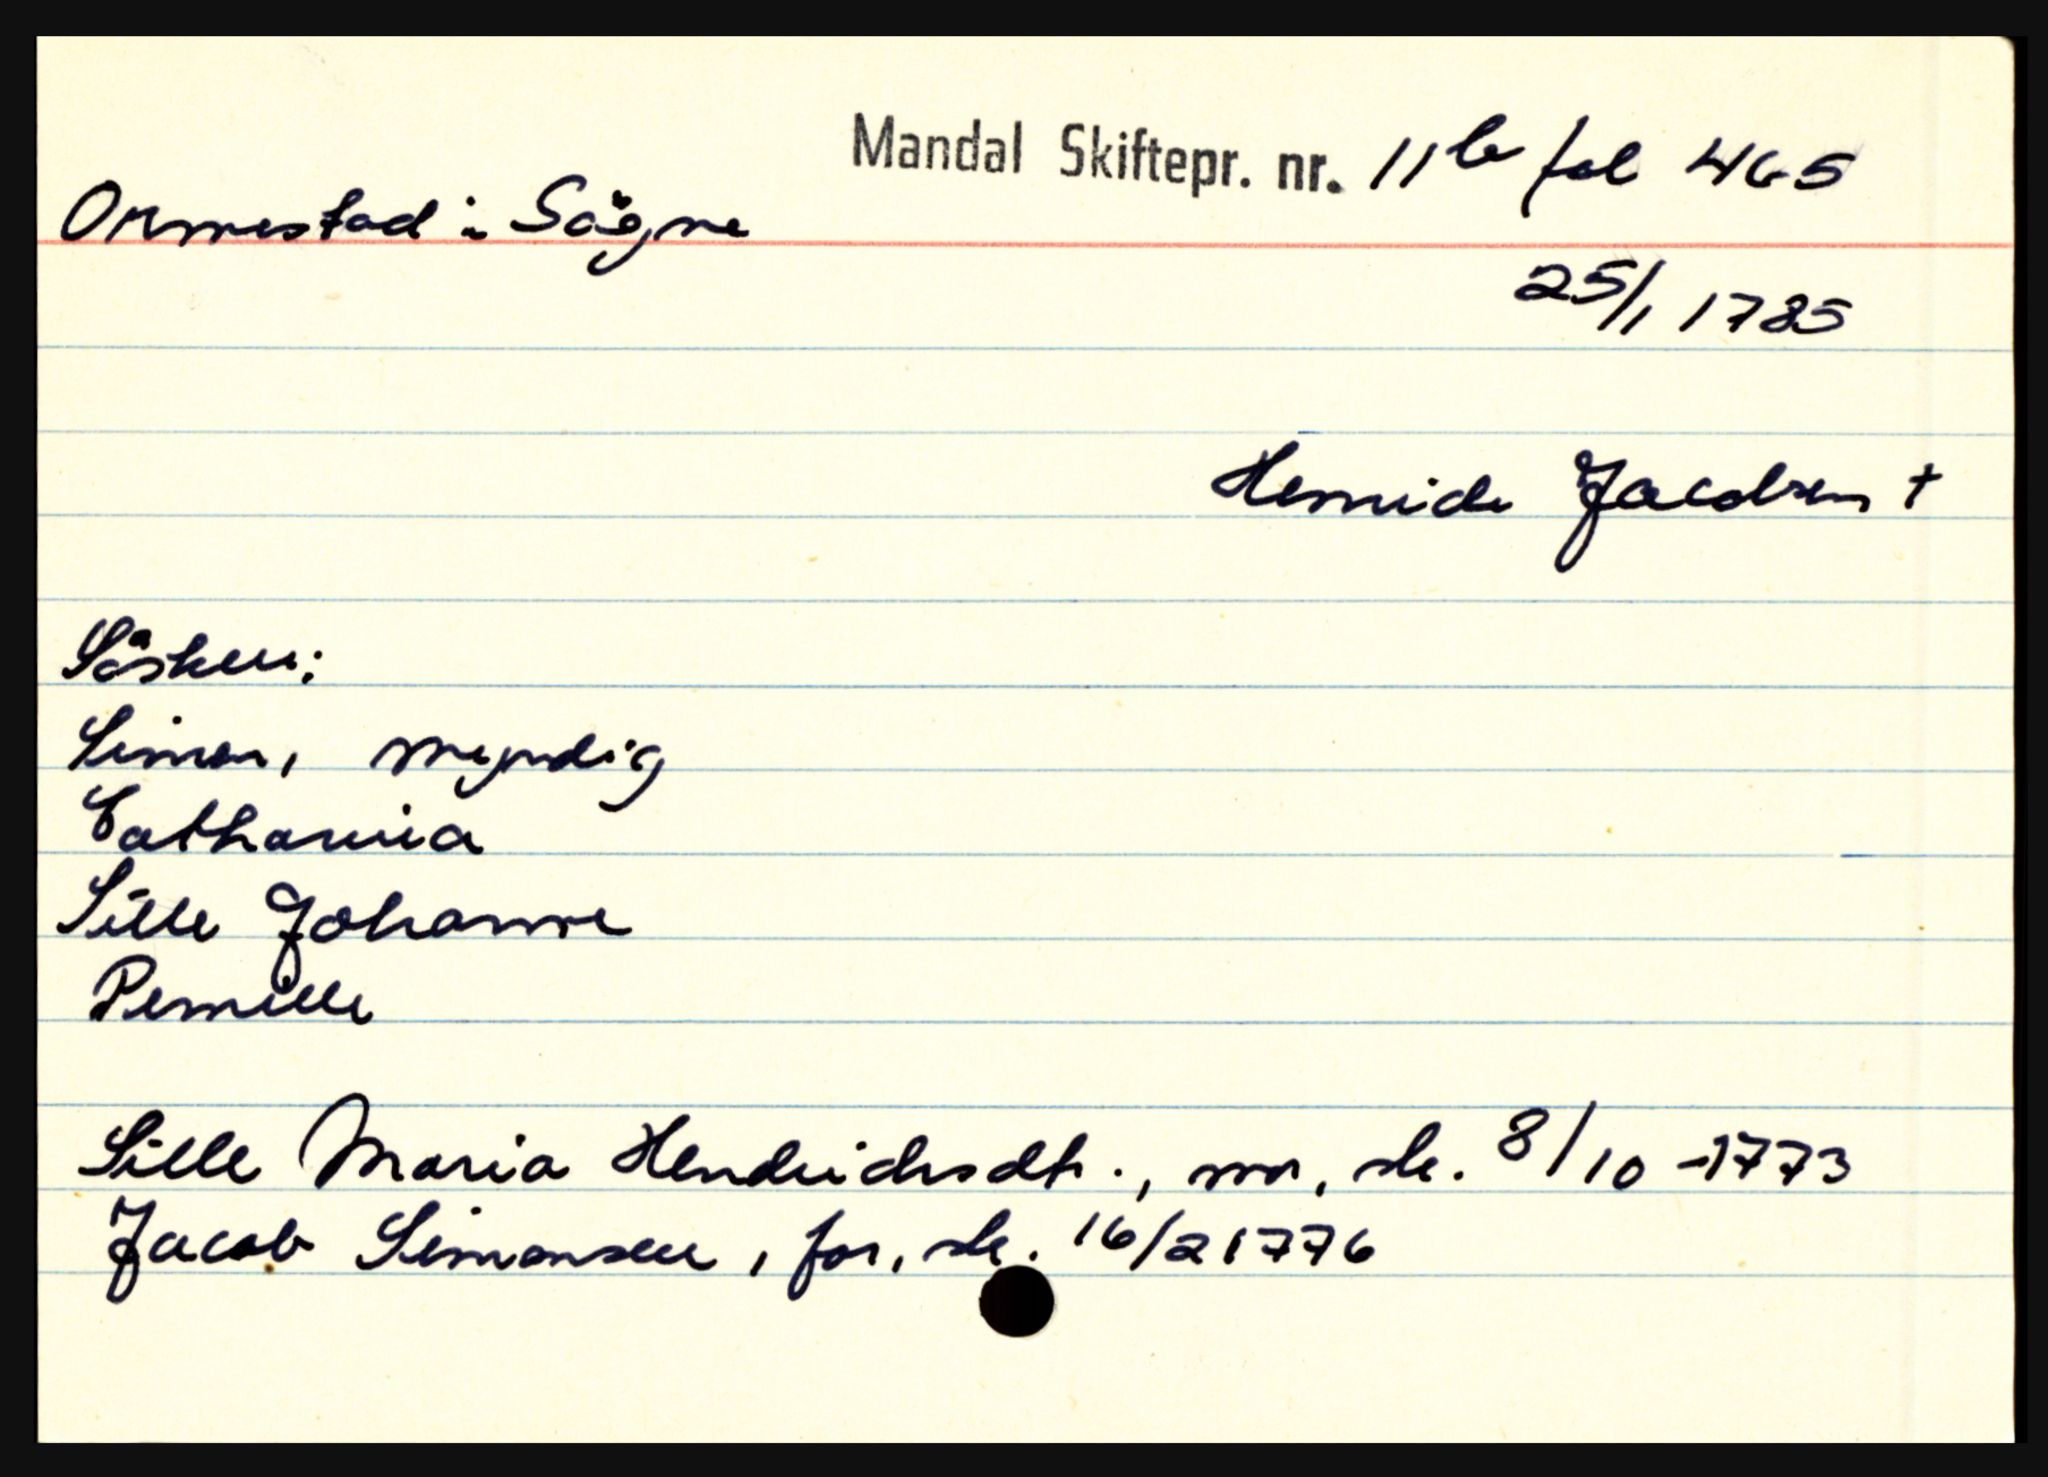 Mandal Skiftepr. nr. 11b fol 465
Ormestad i Sögne
25/1 1785
Jacobsen †
Sösken:
Simon, myndig
Catharina
Sille Johanne
Pernille
Sille Maria Hendrichsdtr., mor, sk. 8/10 - 1773
Jacob Simonsen, far, sk. 16/2 1776